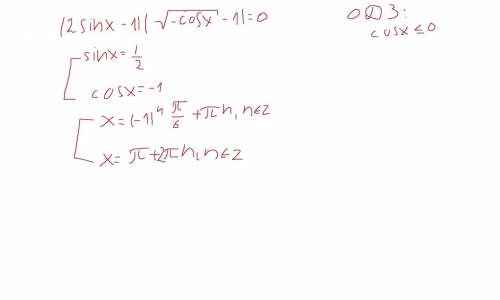 (2 sinx - 1)(√-cosx - 1) = 0
ОДЗ:
cosx ≤ 0
sinx = 1/2
cosx = -1
x = (-1)ⁿ π/6 + πn, n∈Z
x = π + 2πn, n∈Z